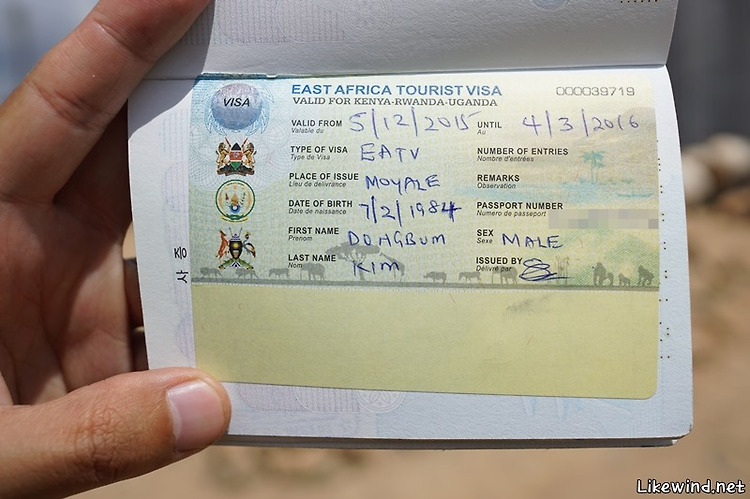 EAST AFRICA TOURIST VISA 000039719
VISA VALID FOR KENYA-RWANDA-UGANDA
VALID FROM 5/12/2015 UNTIL 4/3/2016
Valable du Au
TYPE OF VISA EATV NUMBER OF ENTRIES
Type de Visa Nombre d'entrées
PLACE OF ISSUE MOYALE REMARKS
Lieu de delivrance Observation
DATE OF BIRTH 7/2/1984 PASSPORT NUMBER
Date de naissance Numero de passeport
FIRST NAME DONGBUM SEX MALE
Prenom Sexe
LAST NAME KIM ISSUED BY
Nom Délivré par
Likewind.net